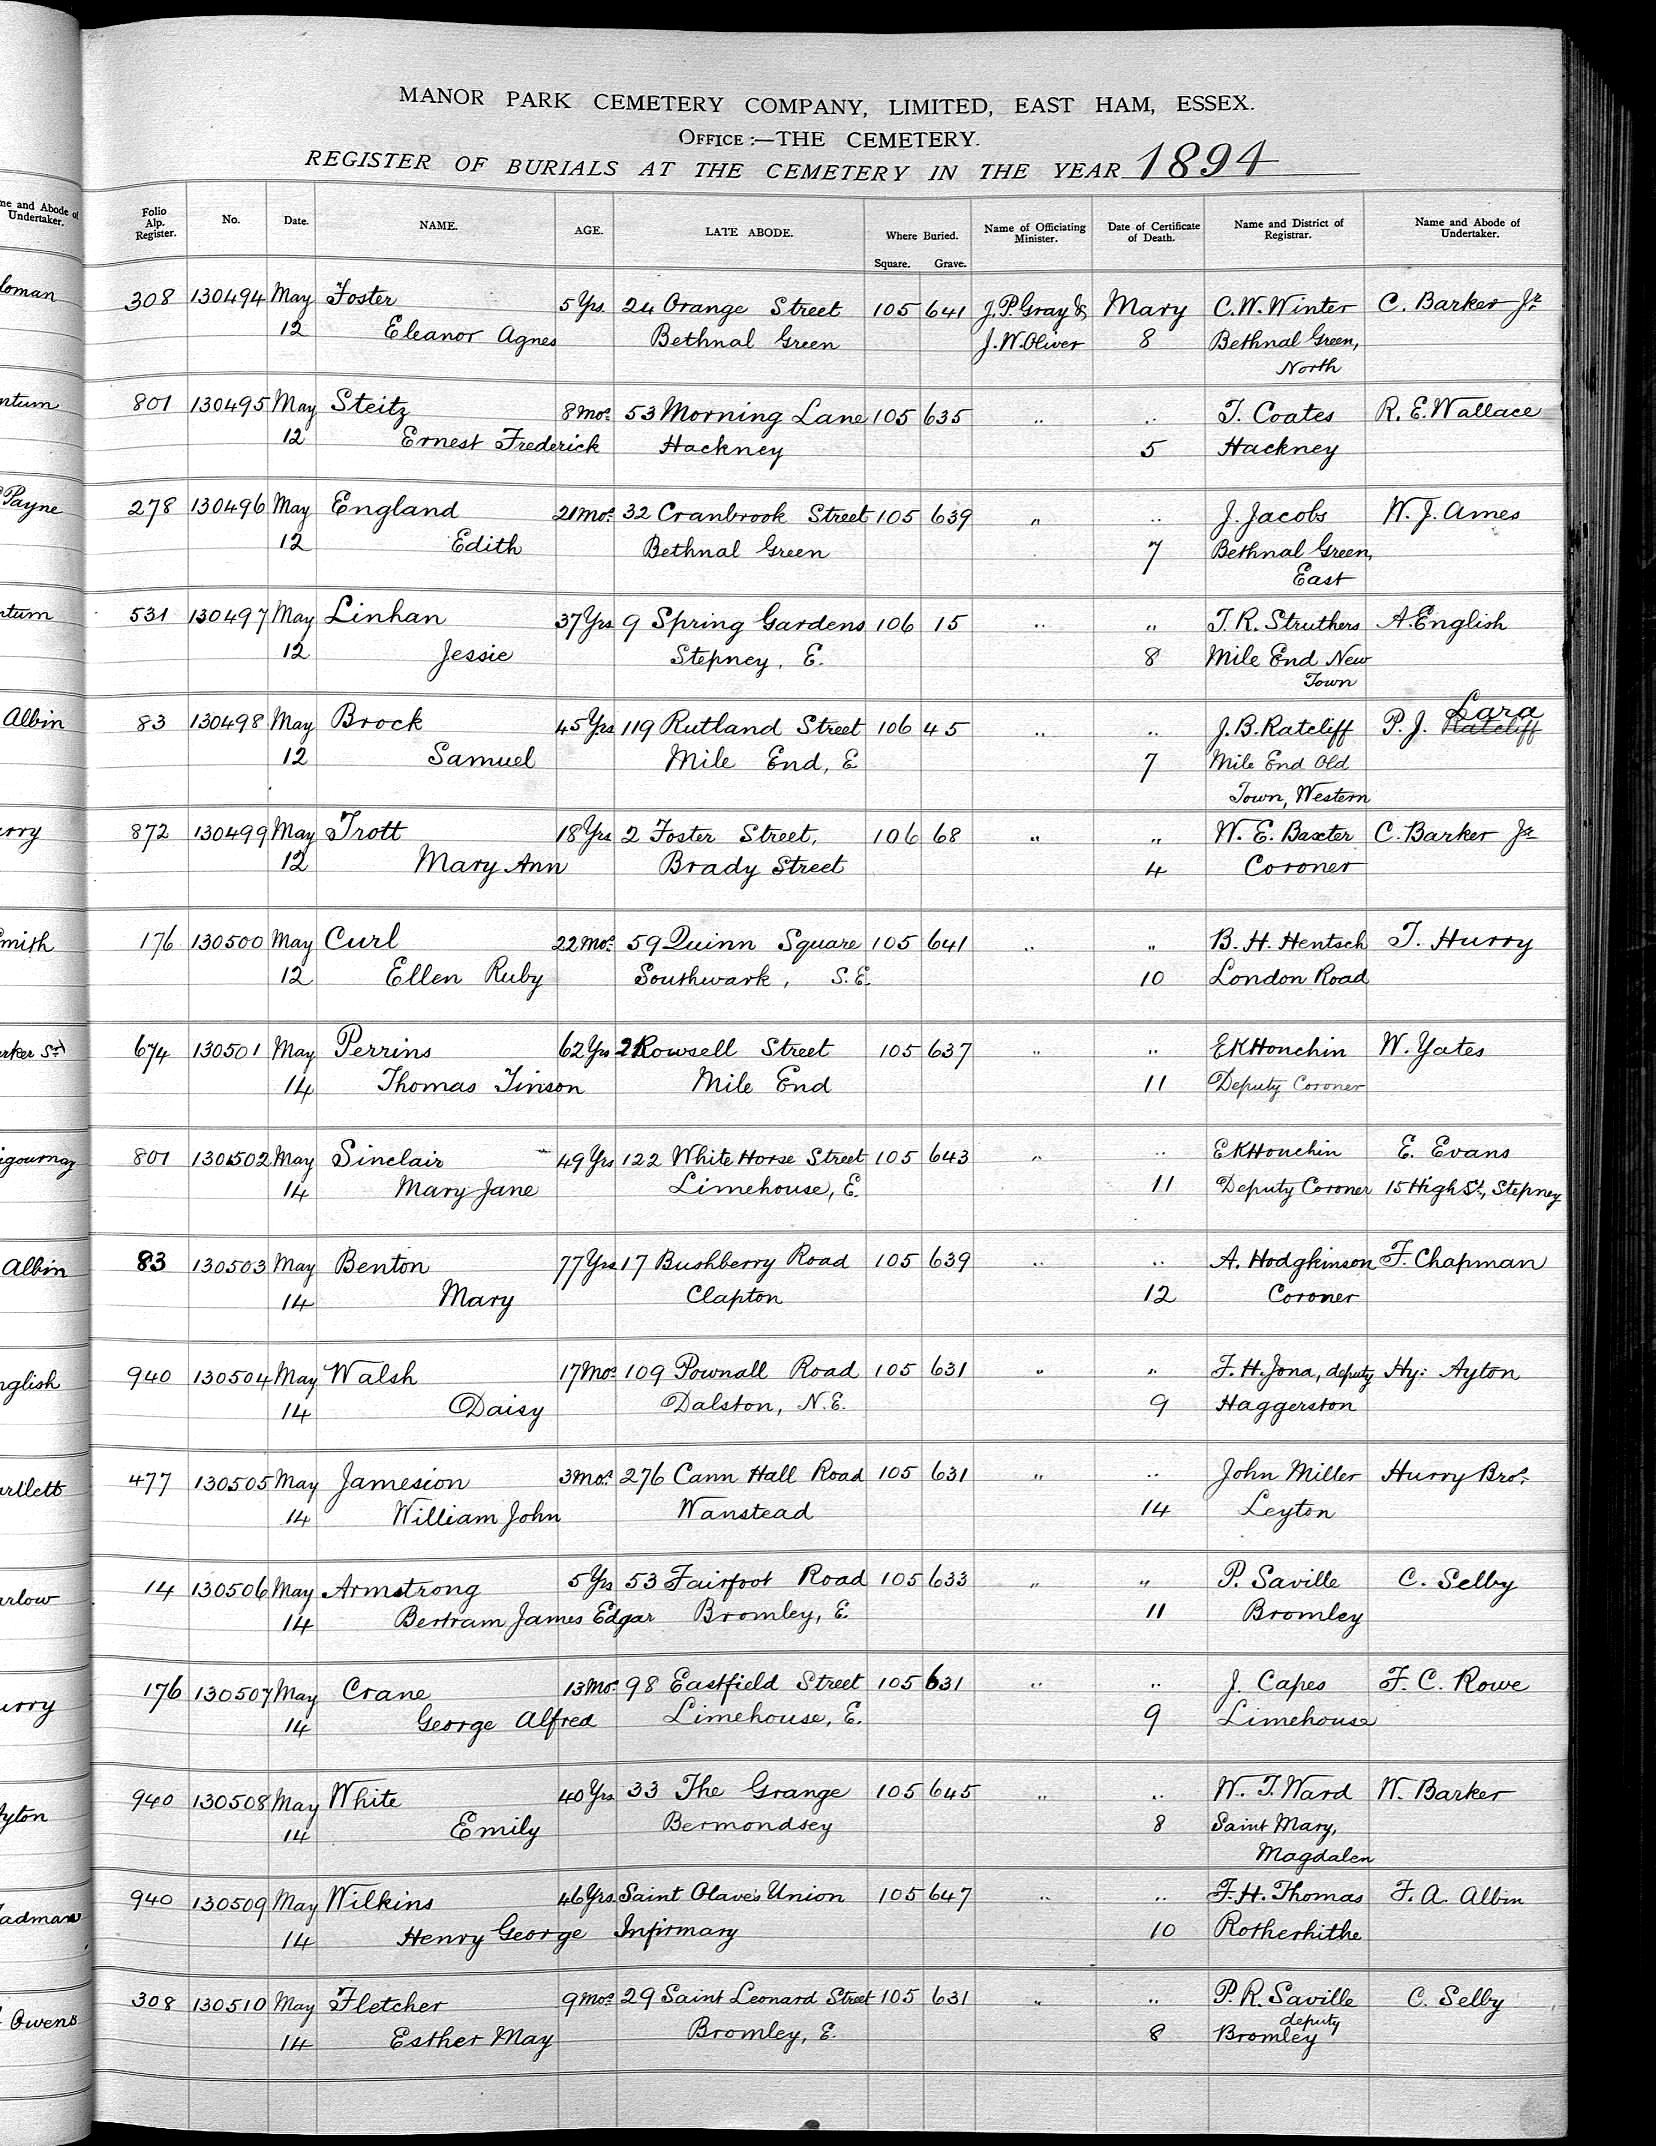 MANOR PARK CEMETERY COMPANY, LIMITED, EAST HAM, ESSEX.
OFFICE:—THE CEMETERY.
REGISTER OF BURIALS AT THE CEMETERY IN THE YEAR 1894
me and Abode of Undertaker.
Folio Alp. Register. No. Date. NAME. AGE. LATE ABODE. Where Buried. Square. Grave. Name of Officiating Minister. Date of Certificate of Death. Name and District of Registrar. Name and Abode of Undertaker.
308 130494 May Foster 5 Yrs. 24 Orange Street 105 641 J. P. Gray & Mary C. W. Winter C. Barker Jr.
12 Eleanor Agnes Bethnal Green J. W. Oliver 8 Bethnal Green,
North
801 130495 May Steitz 8 mos. 53 Morning Lane 105 635 " " T. Coates R. E. Wallace
12 Ernest Frederick Hackney 5 Hackney
278 130496 May England 21 mos. 32 Cranbrook Street 105 639 " " J. Jacobs W. J. Ames
12 Edith Bethnal Green 7 Bethnal Green,
East
531 130497 May Linhan 37 Yrs 9 Spring Gardens 106 15 " " T. R. Struthers A. English
12 Jessie Stepney, E. 8 Mile End New
Town
83 130498 May Brock 45 Yrs 119 Rutland Street 106 45 " " J. B. Ratcliff P. J. Ratcliff Lara
12 Samuel Mile End, E 7 Mile End Old
Town, Western
872 130499 May Trott 18 Yrs 2 Foster Street, 106 68 " " W. E. Baxter C. Barker Jr
12 Mary Ann Brady Street 4 Coroner
176 130500 May Curl 22 mos. 59 Quinn Square 105 641 " " B. H. Hentsch T. Hurry
12 Ellen Ruby Southwark, S.E. 10 London Road
674 130501 May Perrins 62 Yrs 21 Rowsell Street 105 637 " " E K Houchin W. Yates
14 Thomas Tinson Mile End 11 Deputy Coroner
801 130502 May Sinclair 49 Yrs 122 White Horse Street 105 643 " " E K Houchin E. Evans
14 Mary Jane Limehouse, E. 11 Deputy Coroner 15 High St., Stepney
83 130503 May Benton 77 Yrs 17 Bushberry Road 105 639 " " A. Hodgkinson F. Chapman
14 Mary Clapton 12 Coroner
940 130504 May Walsh 17 Mos. 109 Pownall Road 105 631 " " F. H. Jona, deputy Hy: Ayton
14 Daisy Dalston, N.E. 9 Haggerston
477 130505 May Jamesion 3 mos. 276 Cann Hall Road 105 631 " " John Miller Hurry Bros.
14 William John Wanstead 14 Leyton
14 130506 May Armstrong 5 Yrs 53 Fairfoot Road 105 633 " " P. Saville C. Selby
14 Bertram James Edgar Bromley, E. 11 Bromley
176 130507 May Crane 13 Mos. 98 Eastfield Street 105 631 " " J. Capes F. C. Rowe
14 George Alfred Limehouse, E. 9 Limehouse
940 130508 May White 40 Yrs 33 The Grange 105 645 " " W. T. Ward W. Barker
14 Emily Bermondsey 8 Saint Mary,
Magdalen
940 130509 May Wilkins 46 Yrs Saint Olave's Union 105 647 " " F. H. Thomas F. A. Albin
14 Henry George Infirmary 10 Rotherhithe
308 130510 May Fletcher 9 mos. 29 Saint Leonard Street 105 631 " " P. R. Saville C. Selby
deputy
14 Esther May Bromley, E. 8 Bromley
Payne
Albin
Albin
Owens